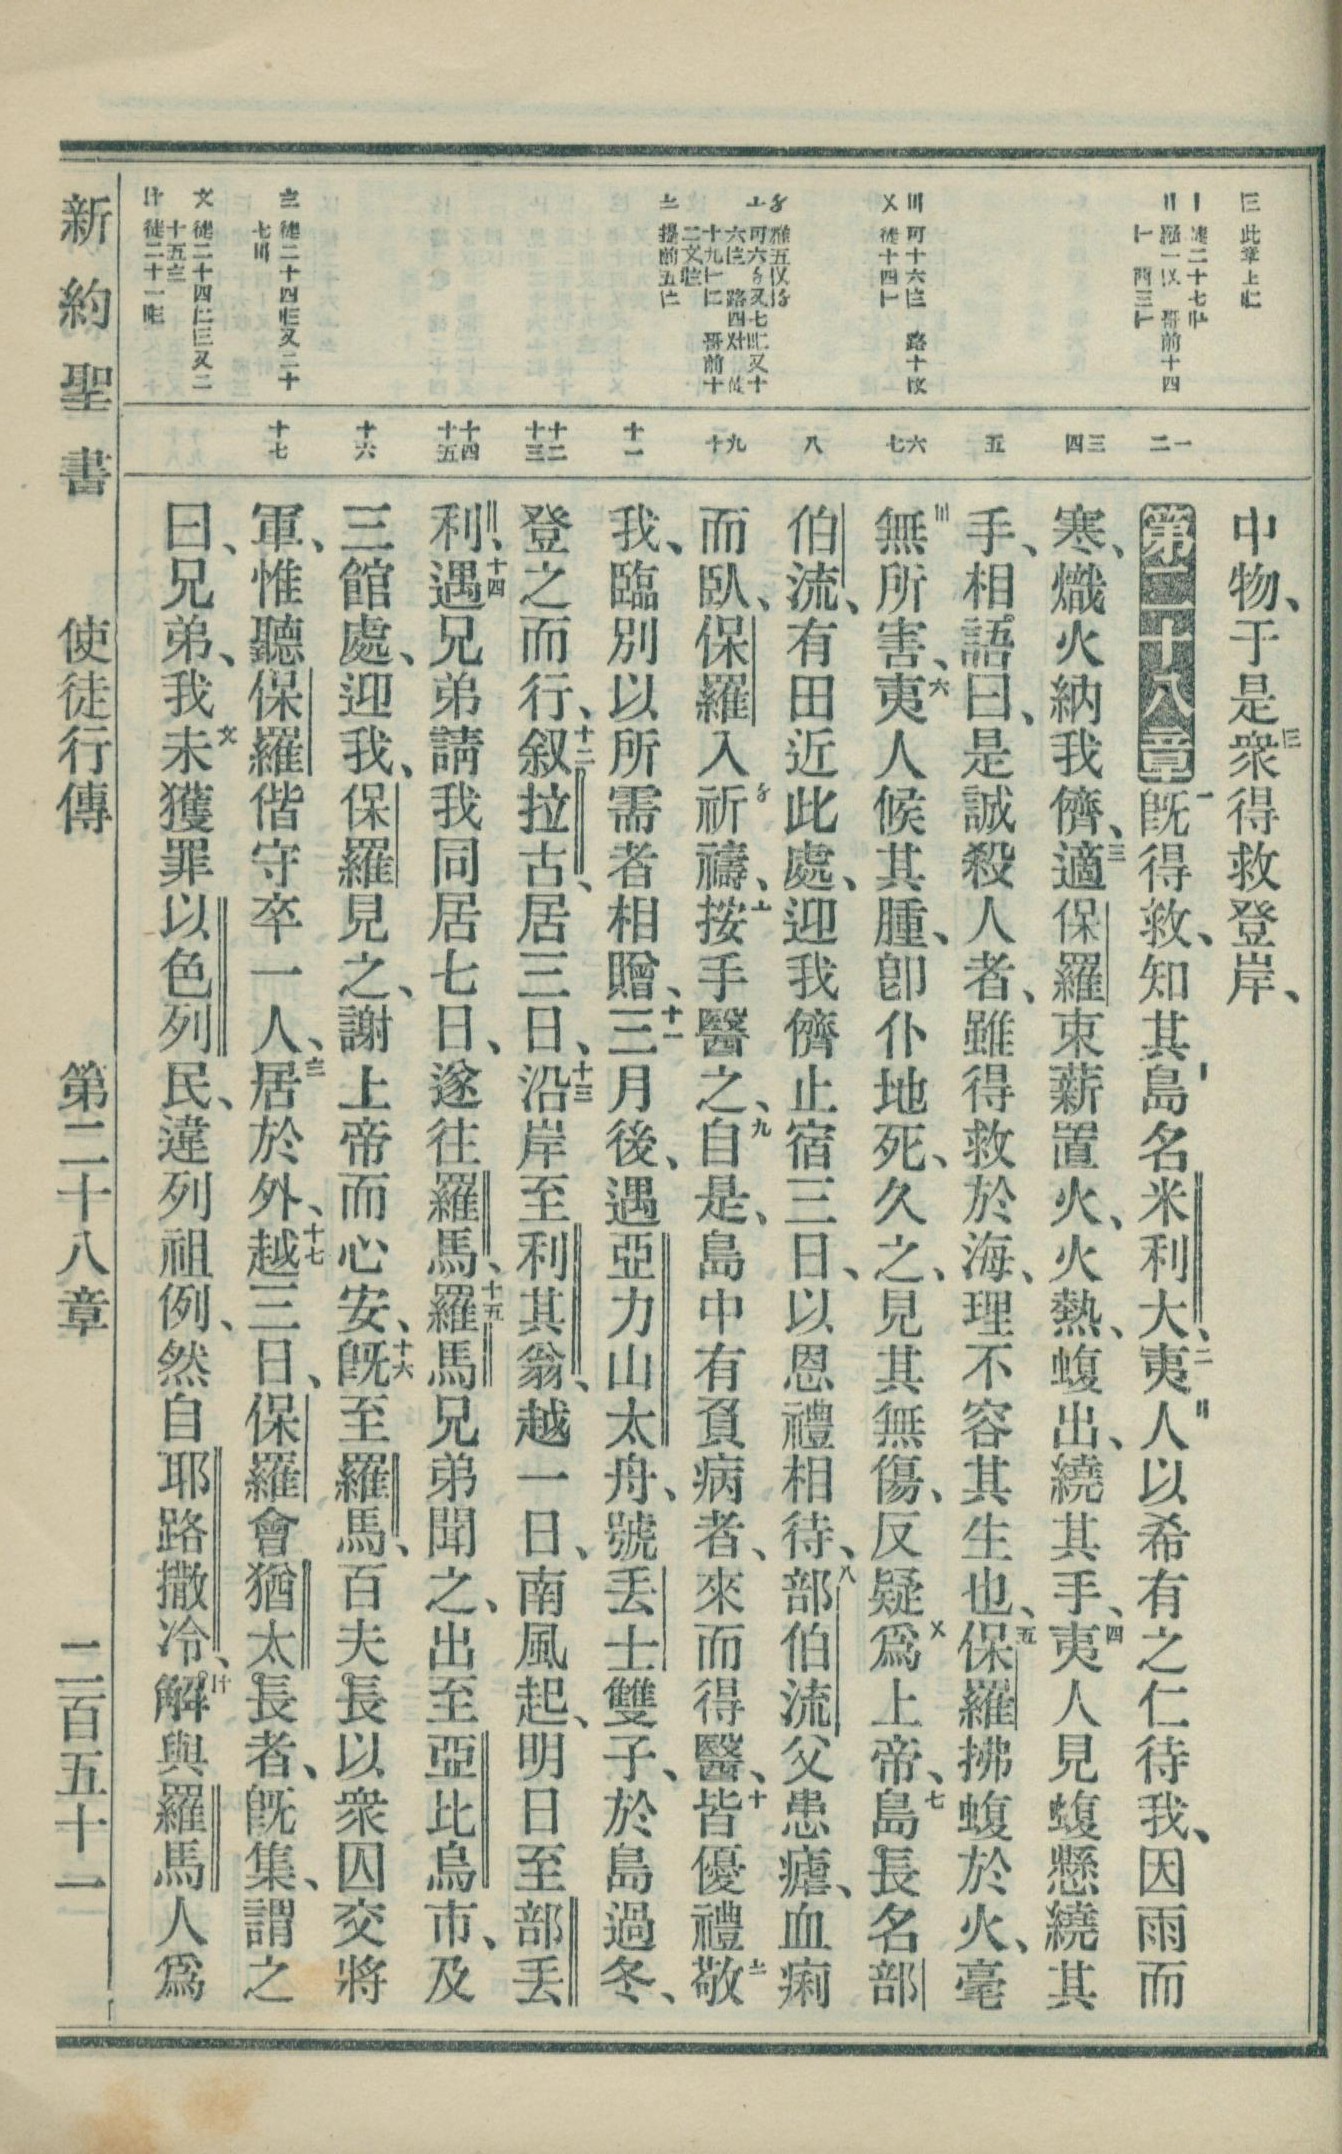 中物、于是衆得救登岸、
第二十八章 旣得救、知其島名米利大、夷人以希有之仁待我、因雨而
寒、熾火納我儕、適保羅束薪置火、火熱、蝮出、繞其手、夷人見蝮懸繞其
手、相語曰、是誠殺人者、雖得救於海、理不容其生也、保羅拂蝮於火、毫
無所害、夷人候其腫、卽仆地死、久之、見其無傷、反疑爲上帝、島長名部
伯流、有田近此處、迎我儕止宿三日、以恩禮相待、部伯流父患瘧、血痢
而臥、保羅入祈禱、按手醫之、自是、島中有負病者、來而得醫、皆優禮敬
我、臨別以所需者相贈、三月後、遇亞力山太舟、號丢士雙子、於島過冬、
登之而行、叙拉古、居三日、沿岸至利其翁、越一日、南風起、明日至部丢
利、遇兄弟請我同居七日、遂往羅馬、羅馬兄弟聞之、出至亞比烏市、及
三館處、迎我、保羅見之、謝上帝而心安、旣至羅馬、百夫長以衆囚交將
軍、惟聽保羅偕守卒一人、居於外、越三日、保羅會猶太長者、旣集、謂之
曰、兄弟、我未獲罪以色列民、違列祖例、然自耶路撒冷、解與羅馬人爲
一二
三四
五
六七
八
九十
十一
十二十三
十四十五
十六
十七
新約聖書 使徒行傳 第二十八章 二百五十一